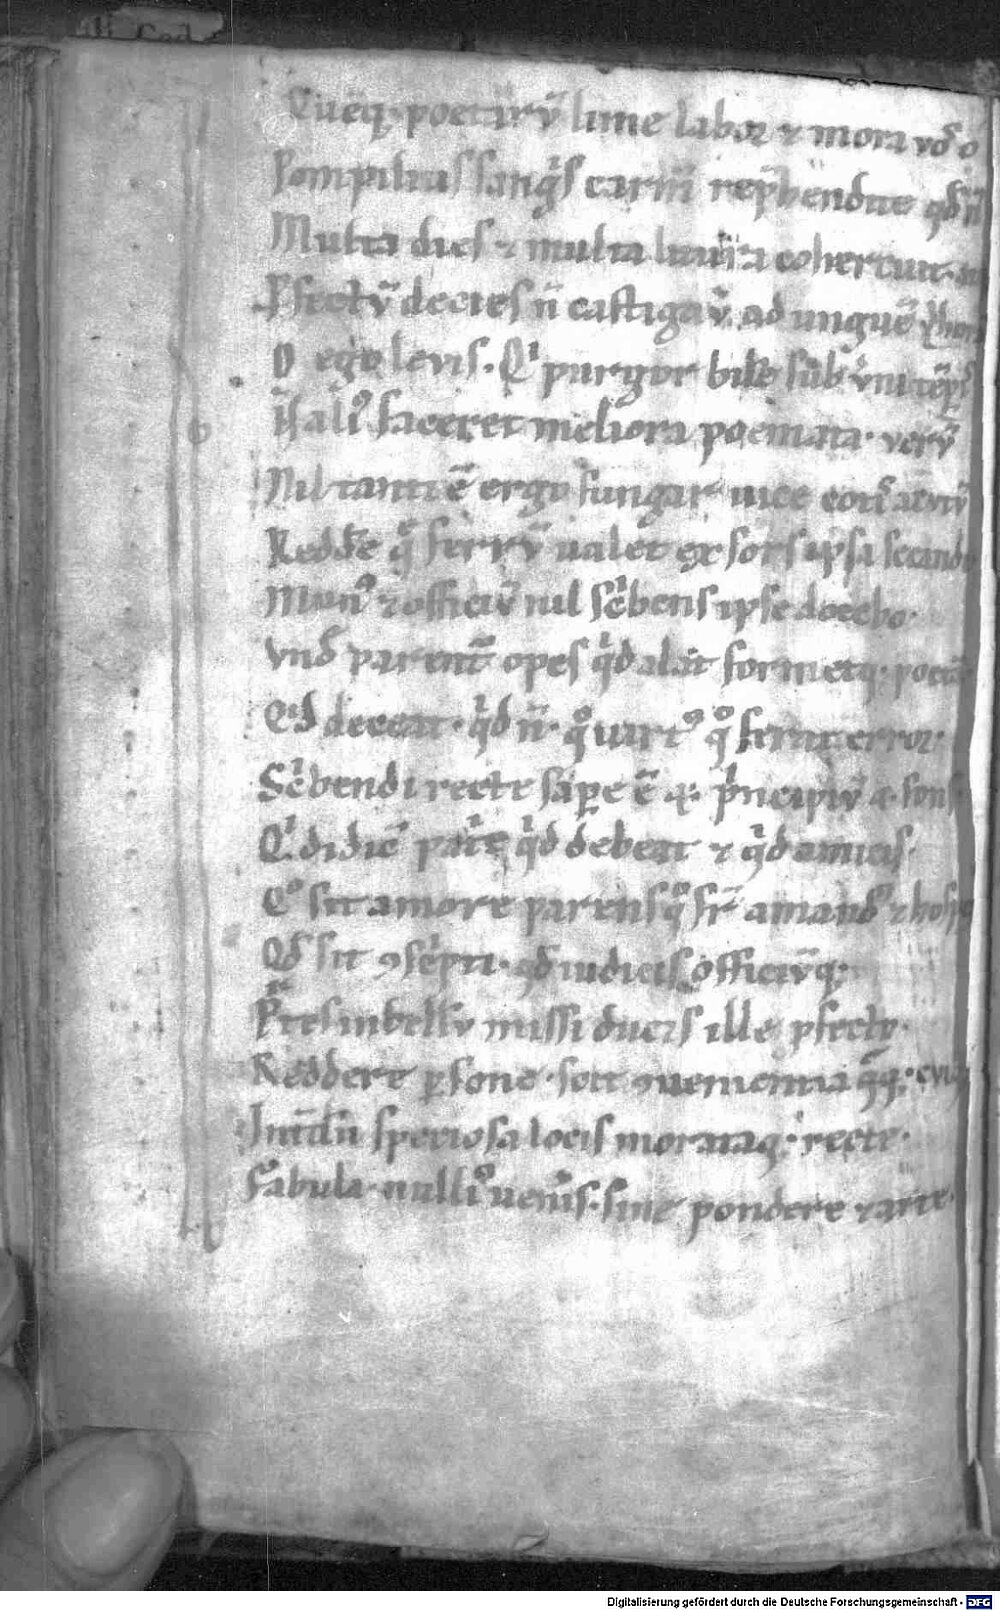 Cueq; poetarū lime labor ⁊ mora vos o
Pompilius sangis carm̄ rep̄hendite qd n̄
Multa dies ⁊ multa litura cohercuit
Pfectū decies n̄ castigavit ad unguē
O ego levis. Qi purgor bile sub v̄ni tēp
N̄ aliꝰ faceret meliora poemata. verū
Nil tanti ē ergo fungar vice cotis acutū
Reddē q̄ ferrū valet exsors ipsa secandi
Munꝰ ⁊ officiū nil scbens ipse docebo.
Vnd parent̄ opes qd alat formetq; poetā
Qd deceat. qd n̄. qͦ virtꝰ qͦ ferat error.
Scbendi recte sapͤe ē ⁊ pncipiū ⁊ fons
Qi didic̄ patͥe qd debeat ⁊ qd amicis.
Qͦ sit amore parens qͦ fr̄ amandꝰ ⁊ hospe
Qd sit ꝯscpti. qd iudicis officiūq;
Ptes in bellū missi ducis ille pfecto.
Reddere psone scit ꝯvenientia cuiq;
Int̄dū speciosa locis morataq; recte.
Fabula nulliꝰ venis. sine pondere ⁊ arte.
Digitalisierung gefördert durch die Deutsche Forschungsgemeinschaft - DFG